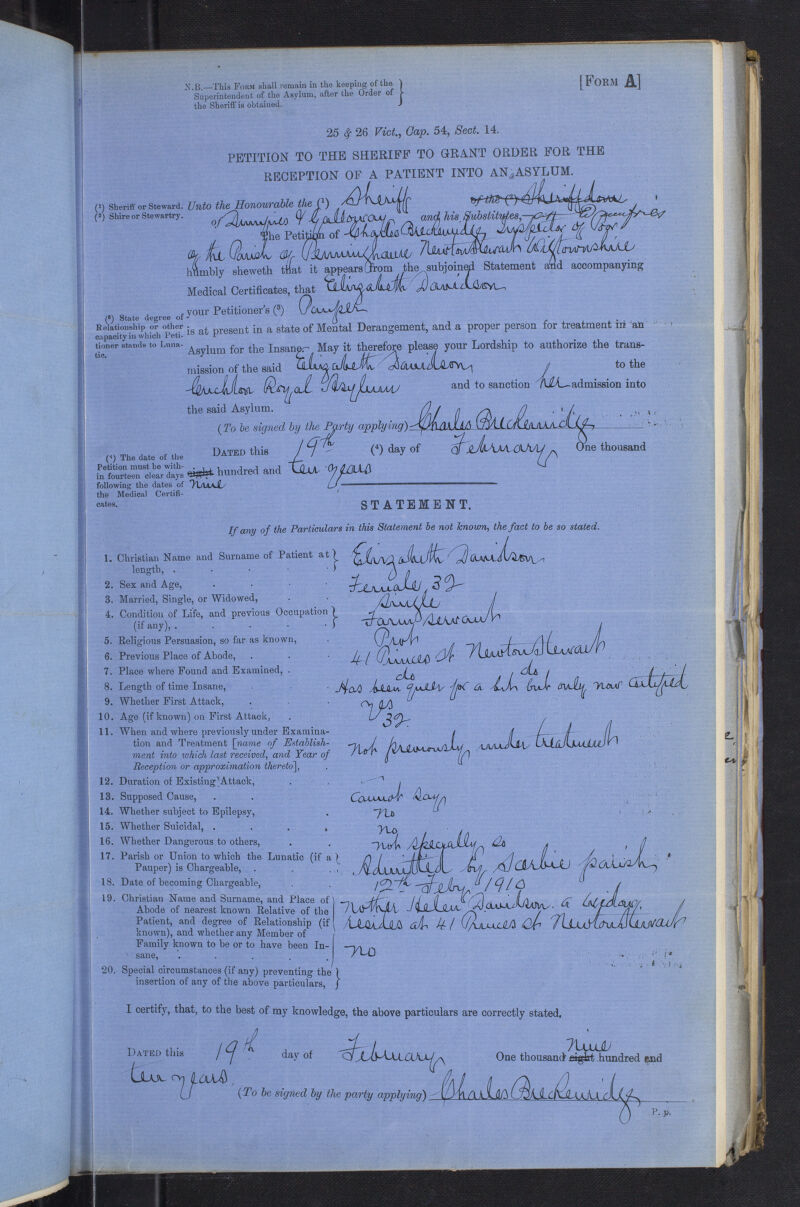 N.B.—This FORM shall remain in the keeping of the
Superintendent of the Asylum, after the Order of
the Sheriff is obtained.
[FORM A]
25 & 26 Vict., Cap. 54, Sect. 14.
PETITION TO THE SHERIFF TO GRANT ORDER FOR THE
RECEPTION OF A PATIENT INTO AN ASYLUM.
(1) Sheriff or Steward.
(2) Shire or Stewartry.
Unto the Honourable the (1) Sheriff of the (2) Sheriffdom
of Dumfries & Galloway and his Substitutes, at Dumfries
The Petition of Charles Breckenridge Inspector of Poor
of the Parish of Penninghame Newton Stewart Wigtownshire
humbly sheweth that it appears from the subjoined Statement and accompanying
Medical Certificates, that Elizabeth Davidson
(3) State degree of
Relationship or other
capacity in which Peti-
tioner stands to Luna-
tic.
your Petitioner's (3) Pauper
is at present in a state of Mental Derangement, and a proper person for treatment in an
Asylum for the Insane. May it therefore please your Lordship to authorize the trans-
mission of the said Elizabeth Davidson to the
Crichton Royal Asylum and to sanction her admission into
the said Asylum.
(To be signed by the Party applying) Charles Breckenridge
(4) The date of the
Petition must be with-
in fourteen clear days
following the dates of
the Medical Certifi-
cates.
DATED this 19th (4) day of February One thousand
eight hundred and ten years
Nine
STATEMENT.
If any of the Particulars in this Statement be not known, the fact to be so stated.
1. Christian Name and Surname of Patient at length, Elizabeth Davidson
2. Sex and Age, Female 32
3. Married, Single, or Widowed, Single
4. Condition of Life, and previous Occupation (if any), Farm Servant
5. Religious Persuasion, so far as known, Prot
6. Previous Place of Abode, 41 Princes St Newton Stewart
7. Place where Found and Examined, do do
8. Length of time Insane, Has been queer for a bit but only now certified
9. Whether First Attack, yes
10. Age (if known) on First Attack, 32
11. When and where previously under Examina-
tion and Treatment [name of Establish-
ment into which last received, and Year of
Reception or approximation thereto], Not previously under treatment
12. Duration of Existing Attack,
13. Supposed Cause, Cannot say
14. Whether subject to Epilepsy, no
15. Whether Suicidal, no
16. Whether Dangerous to others, not specially so
17. Parish or Union to which the Lunatic (if a
Pauper) is Chargeable, Admitted by Sorbie parish
18. Date of becoming Chargeable, 12th Feby 1910
19. Christian Name and Surname, and Place of
Abode of nearest known Relative of the
Patient, and degree of Relationship (if
known), and whether any Member of
Family known to be or to have been In-
sane,
Mother Helen Davidson a widow
resides at 41 Princes St Newton Stewart
no
20. Special circumstances (if any) preventing the
insertion of any of the above particulars,
I certify, that, to the best of my knowledge, the above particulars are correctly stated.
DATED this 19th day of February One thousand eight Nine hundred and
ten years
(To be signed by the party applying) Charles Breckenridge
P. p.